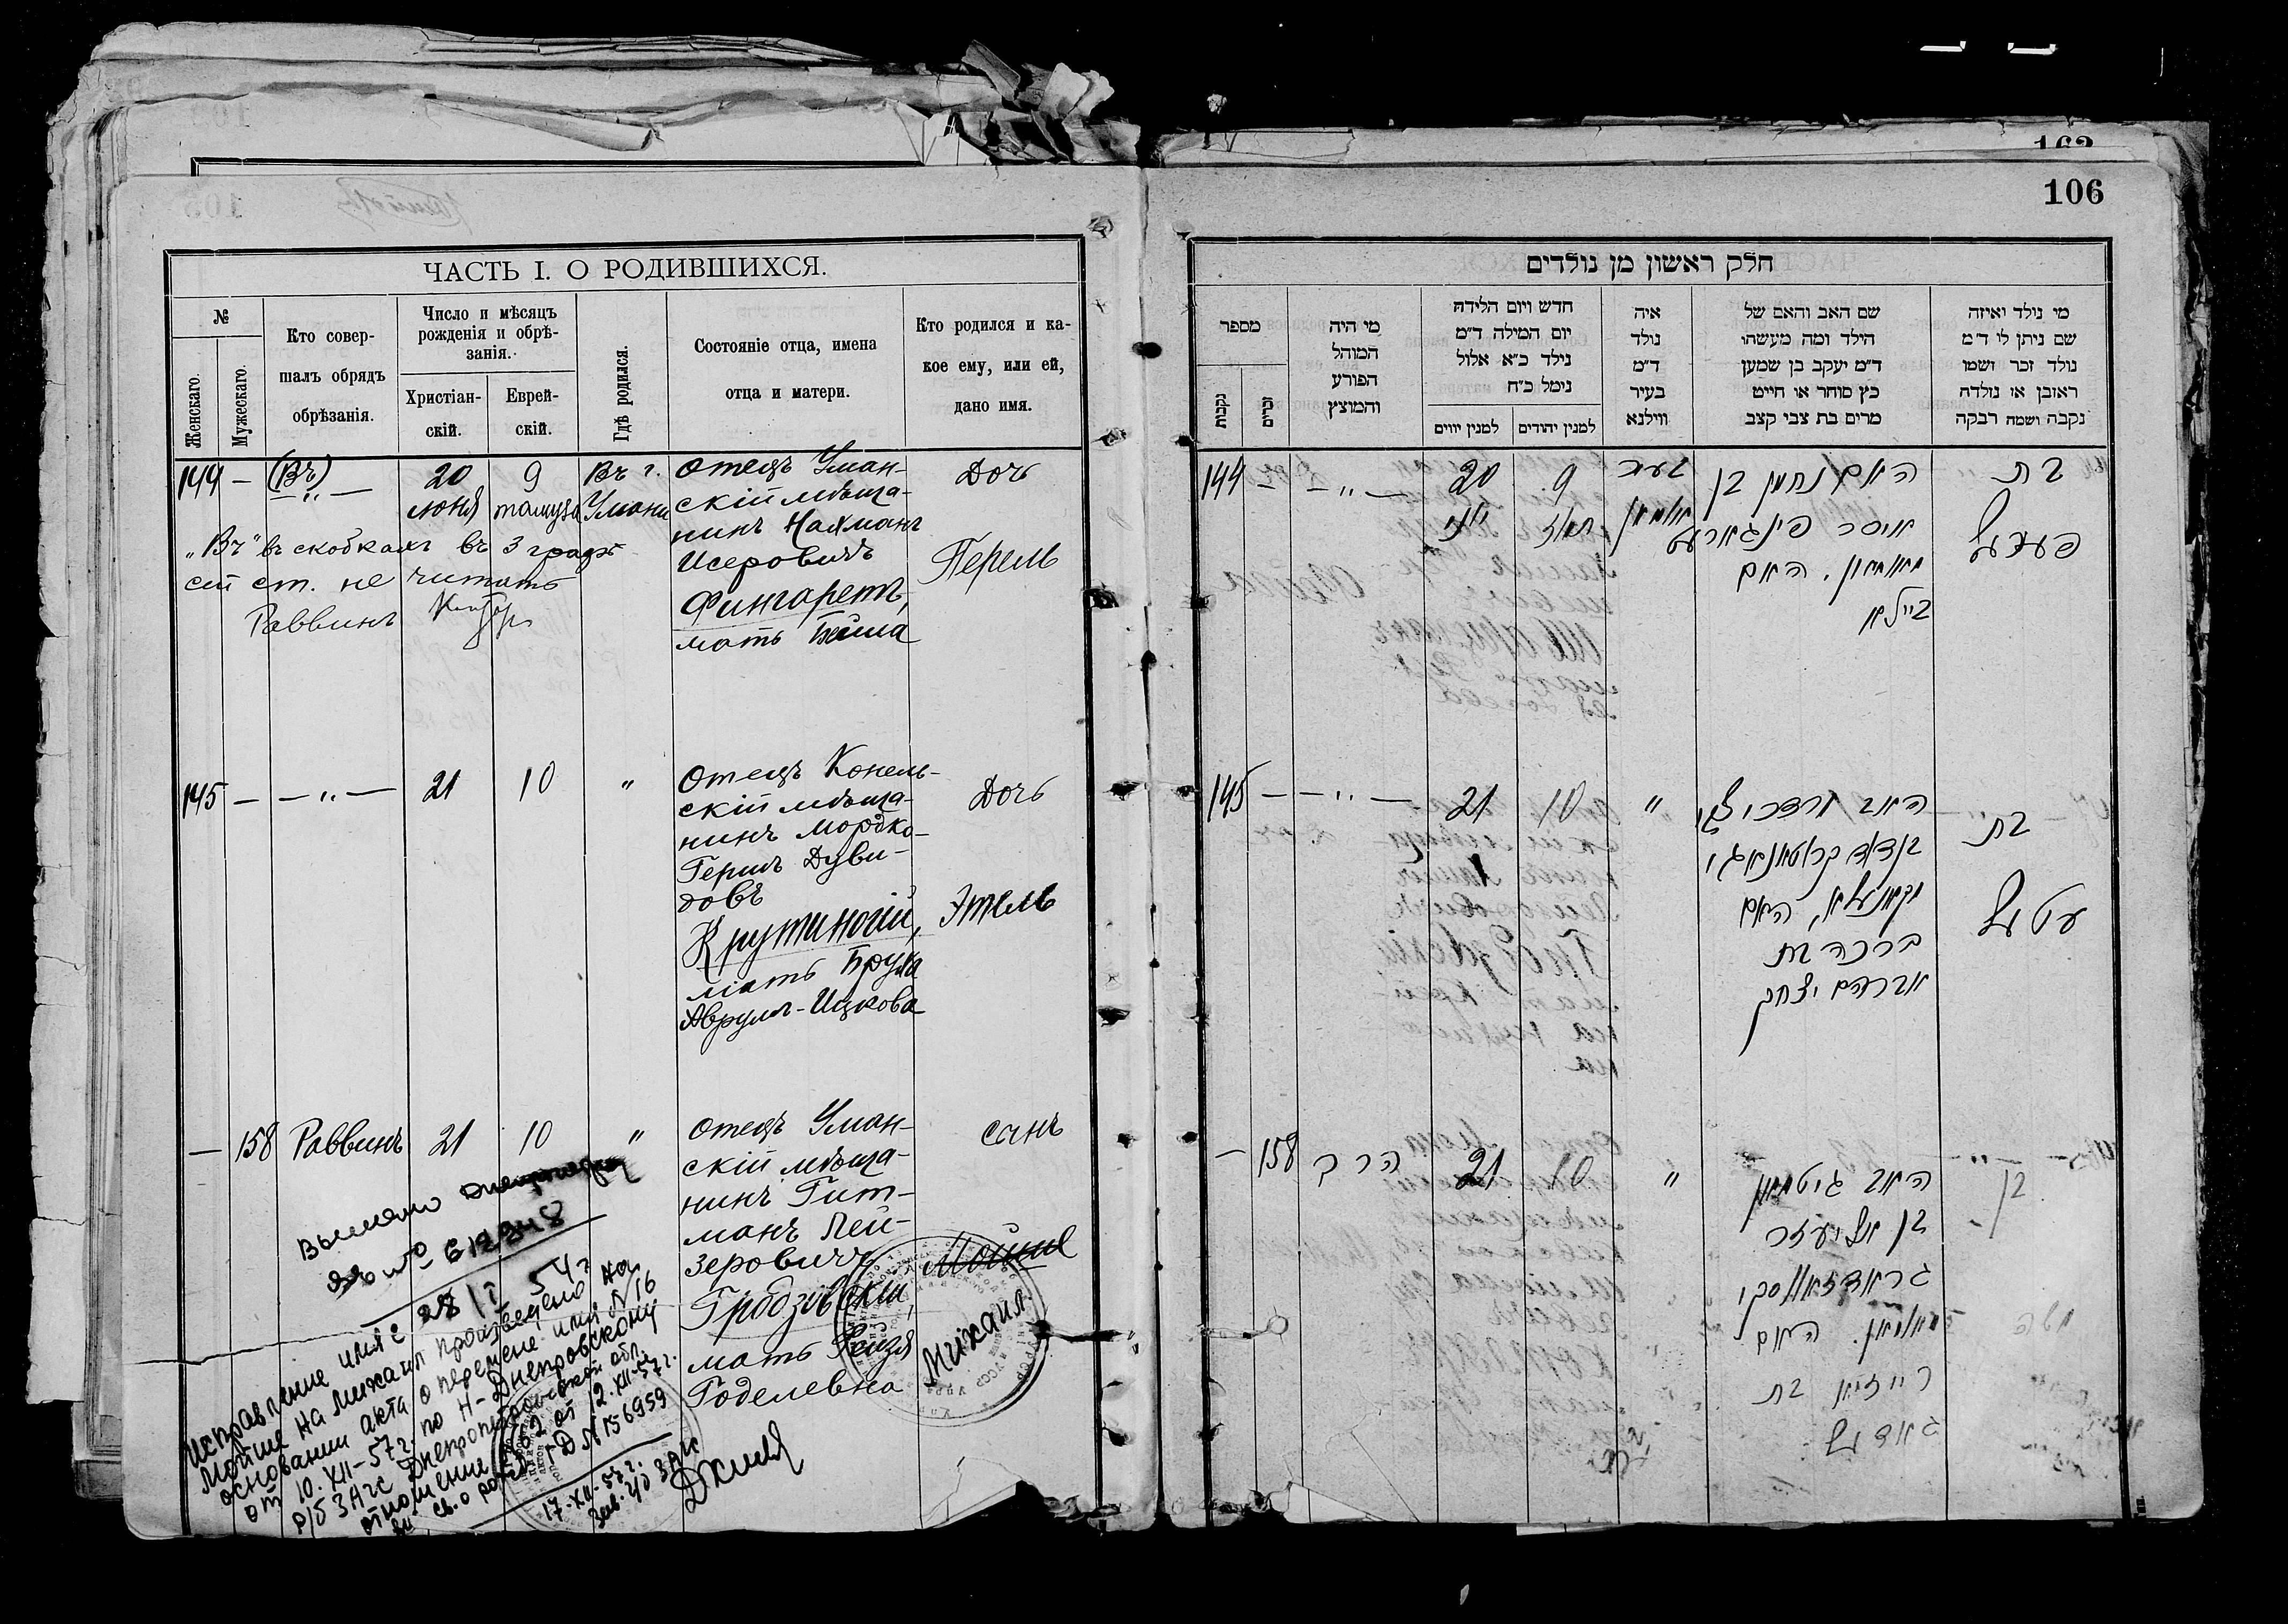 162
106
ЧАСТЬ I. О РОДИВШИХСЯ.
№
Женскаго.
Мужескаго.
Кто совер-
шалъ обрядъ
обрѣзанія.
Число и мѣсяцъ
рожденія и обрѣ-
занія.
Христіан-
скій.
Еврей-
скій.
Гдѣ родился.
Состояніе отца, имена
отца и матери.
Кто родился и ка-
кое ему, или ей,
дано имя.
144 — (Въ) — „ — 20 июня 9 тамуза Въ г. Умани
Отецъ Уман-
скій мѣща-
нинъ Нахманъ
Исеровичъ
Фингаретъ,
мать Бейла
Дочь
Перель
„Въ" въ скобкахъ въ 3 графѣ
сей ст. не читать
Раввинъ
145 — — „ — 21 10 „
Отецъ Конель-
скій мѣща-
нинъ Мордко-
Гершъ Дуви-
довъ
Крутиногій,
мать Бруха
Аврумъ-Ицкова
Дочь
Этель
— 158 Раввинъ 21 10 „
Отецъ Уман-
скій мѣща-
нинъ Гит-
манъ Лей-
зеровичъ
Гродзовскій,
мать Рейзя
Годелевна
сынъ
Мойше
Михаил
28 I 54 г
Исправление имя с
Мойше на Михаил произведено на
основании акта о перемене имя № 16
от 10.XII-57 г. по Н-Днепровскому
р/б ЗАГС Днепропетровской обл.
отношение от 12.XII-57 г.
св. о рожд. № 156959
17-XII-57 г.
Зав. г/б ЗАГС
חלק ראשון מן נולדים
מספר
נקבות
זכרים
מי היה
המוהל
הפורע
והמוצץ
חדש ויום הלידה
יום המילה ד״מ
נילד כ״א אלול
נימל כ״ח
למנין יווים
למנין יהודים
איה
נולד
ד״מ
בעיר
ווילנא
שם האב והאם של
הילד ומה מעשהו
ד״מ יעקב בן שמען
כץ סוחר או חייט
מרים בת צבי קצב
מי נולד ואיזה
שם ניתן לו ד״מ
נולד זכר ושמו
ראובן או נולדה
נקבה ושמה רבקה
144 — — „ — 20 יוני 9 תמוז בעיר אומאן
נחמן בן
איסר פינגארעט
מאומאן, האם
ביילא
בת
פערעל
145 — — „ — 21 10 „
האב מרדכי צבי
בן דוד
האם
ברכה בת
אברהם יצחק
בת
עטעל
— 158 הרב 21 10 „
האב גיטמאן
בן אליעזר
גראדזאווסקי
מאומאן. האם
רייזיא בת
גאדעל
בן
משה